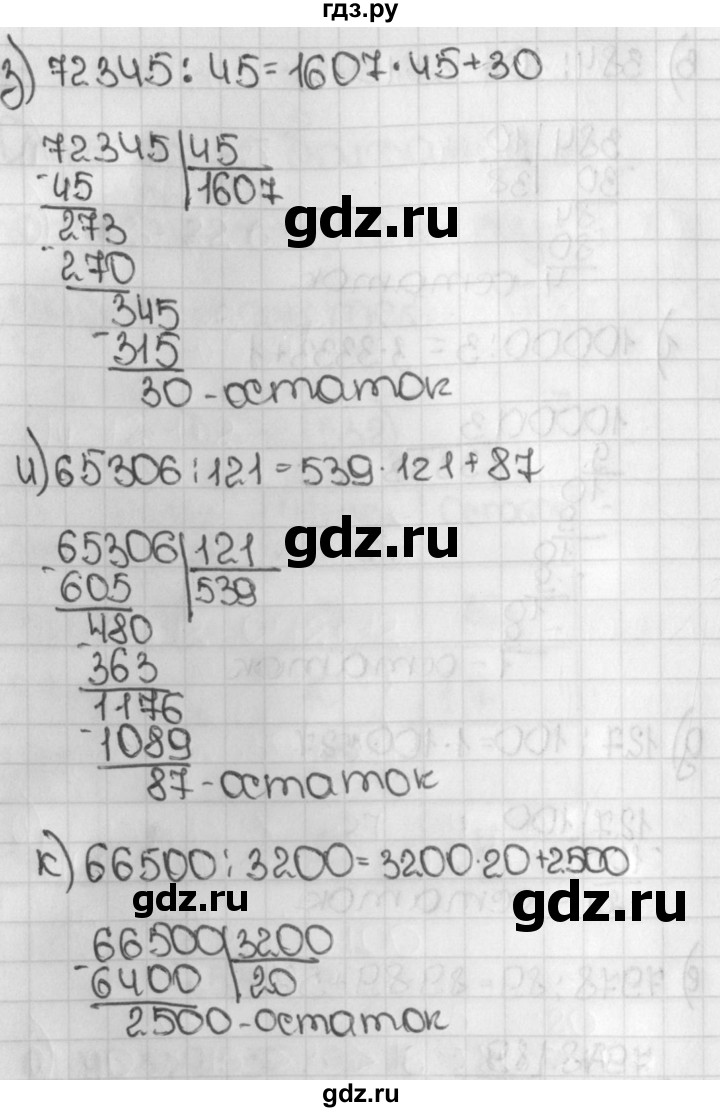 гдз.ру
з) 72345 : 45 = 1607 · 45 + 30
72345 | 45
-45 | 1607
273
-270
345
-315
30 - остаток
gdz.ru
и) 65306 : 121 = 539 · 121 + 87
gdz.ru
65306 | 121
-605 | 539
480
-363
1176
-1089
87 - остаток
к) 66500 : 3200 = 3200 · 20 + 2500
gdz.ru
gdz.ru
66500 | 3200
-6400 | 20
2500 - остаток
gdz.ru